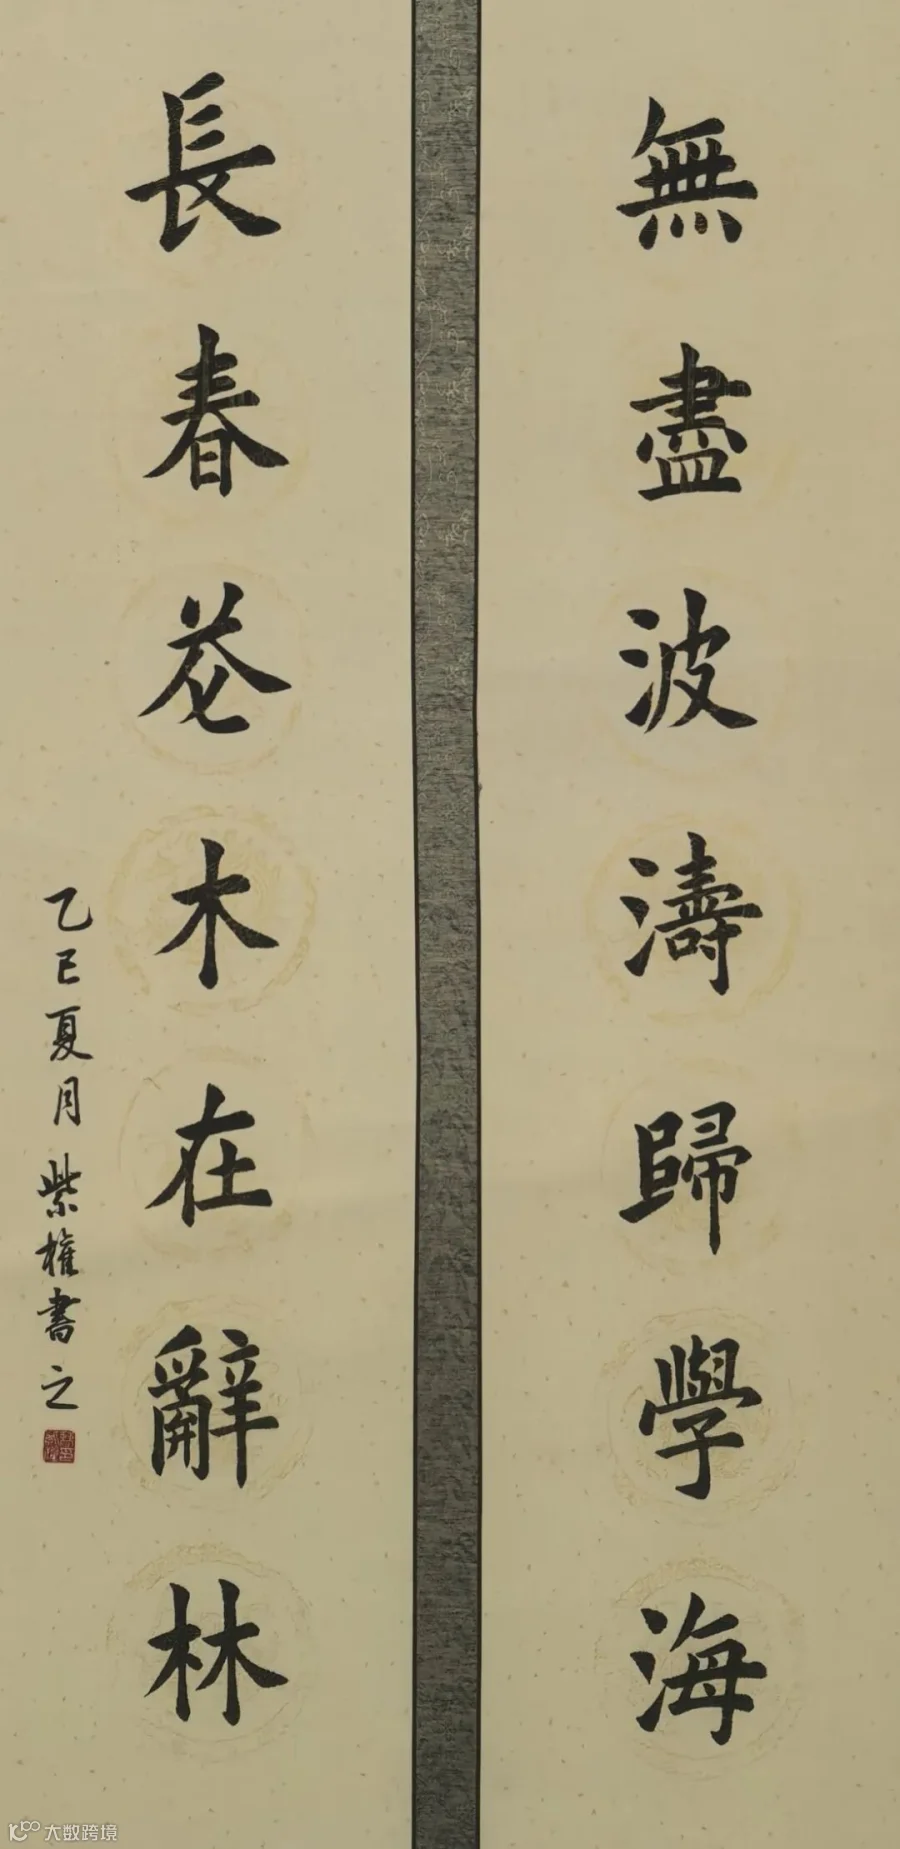 無盡波濤歸學海
長春花木在辭林
乙巳夏月紫權書之
大数跨境